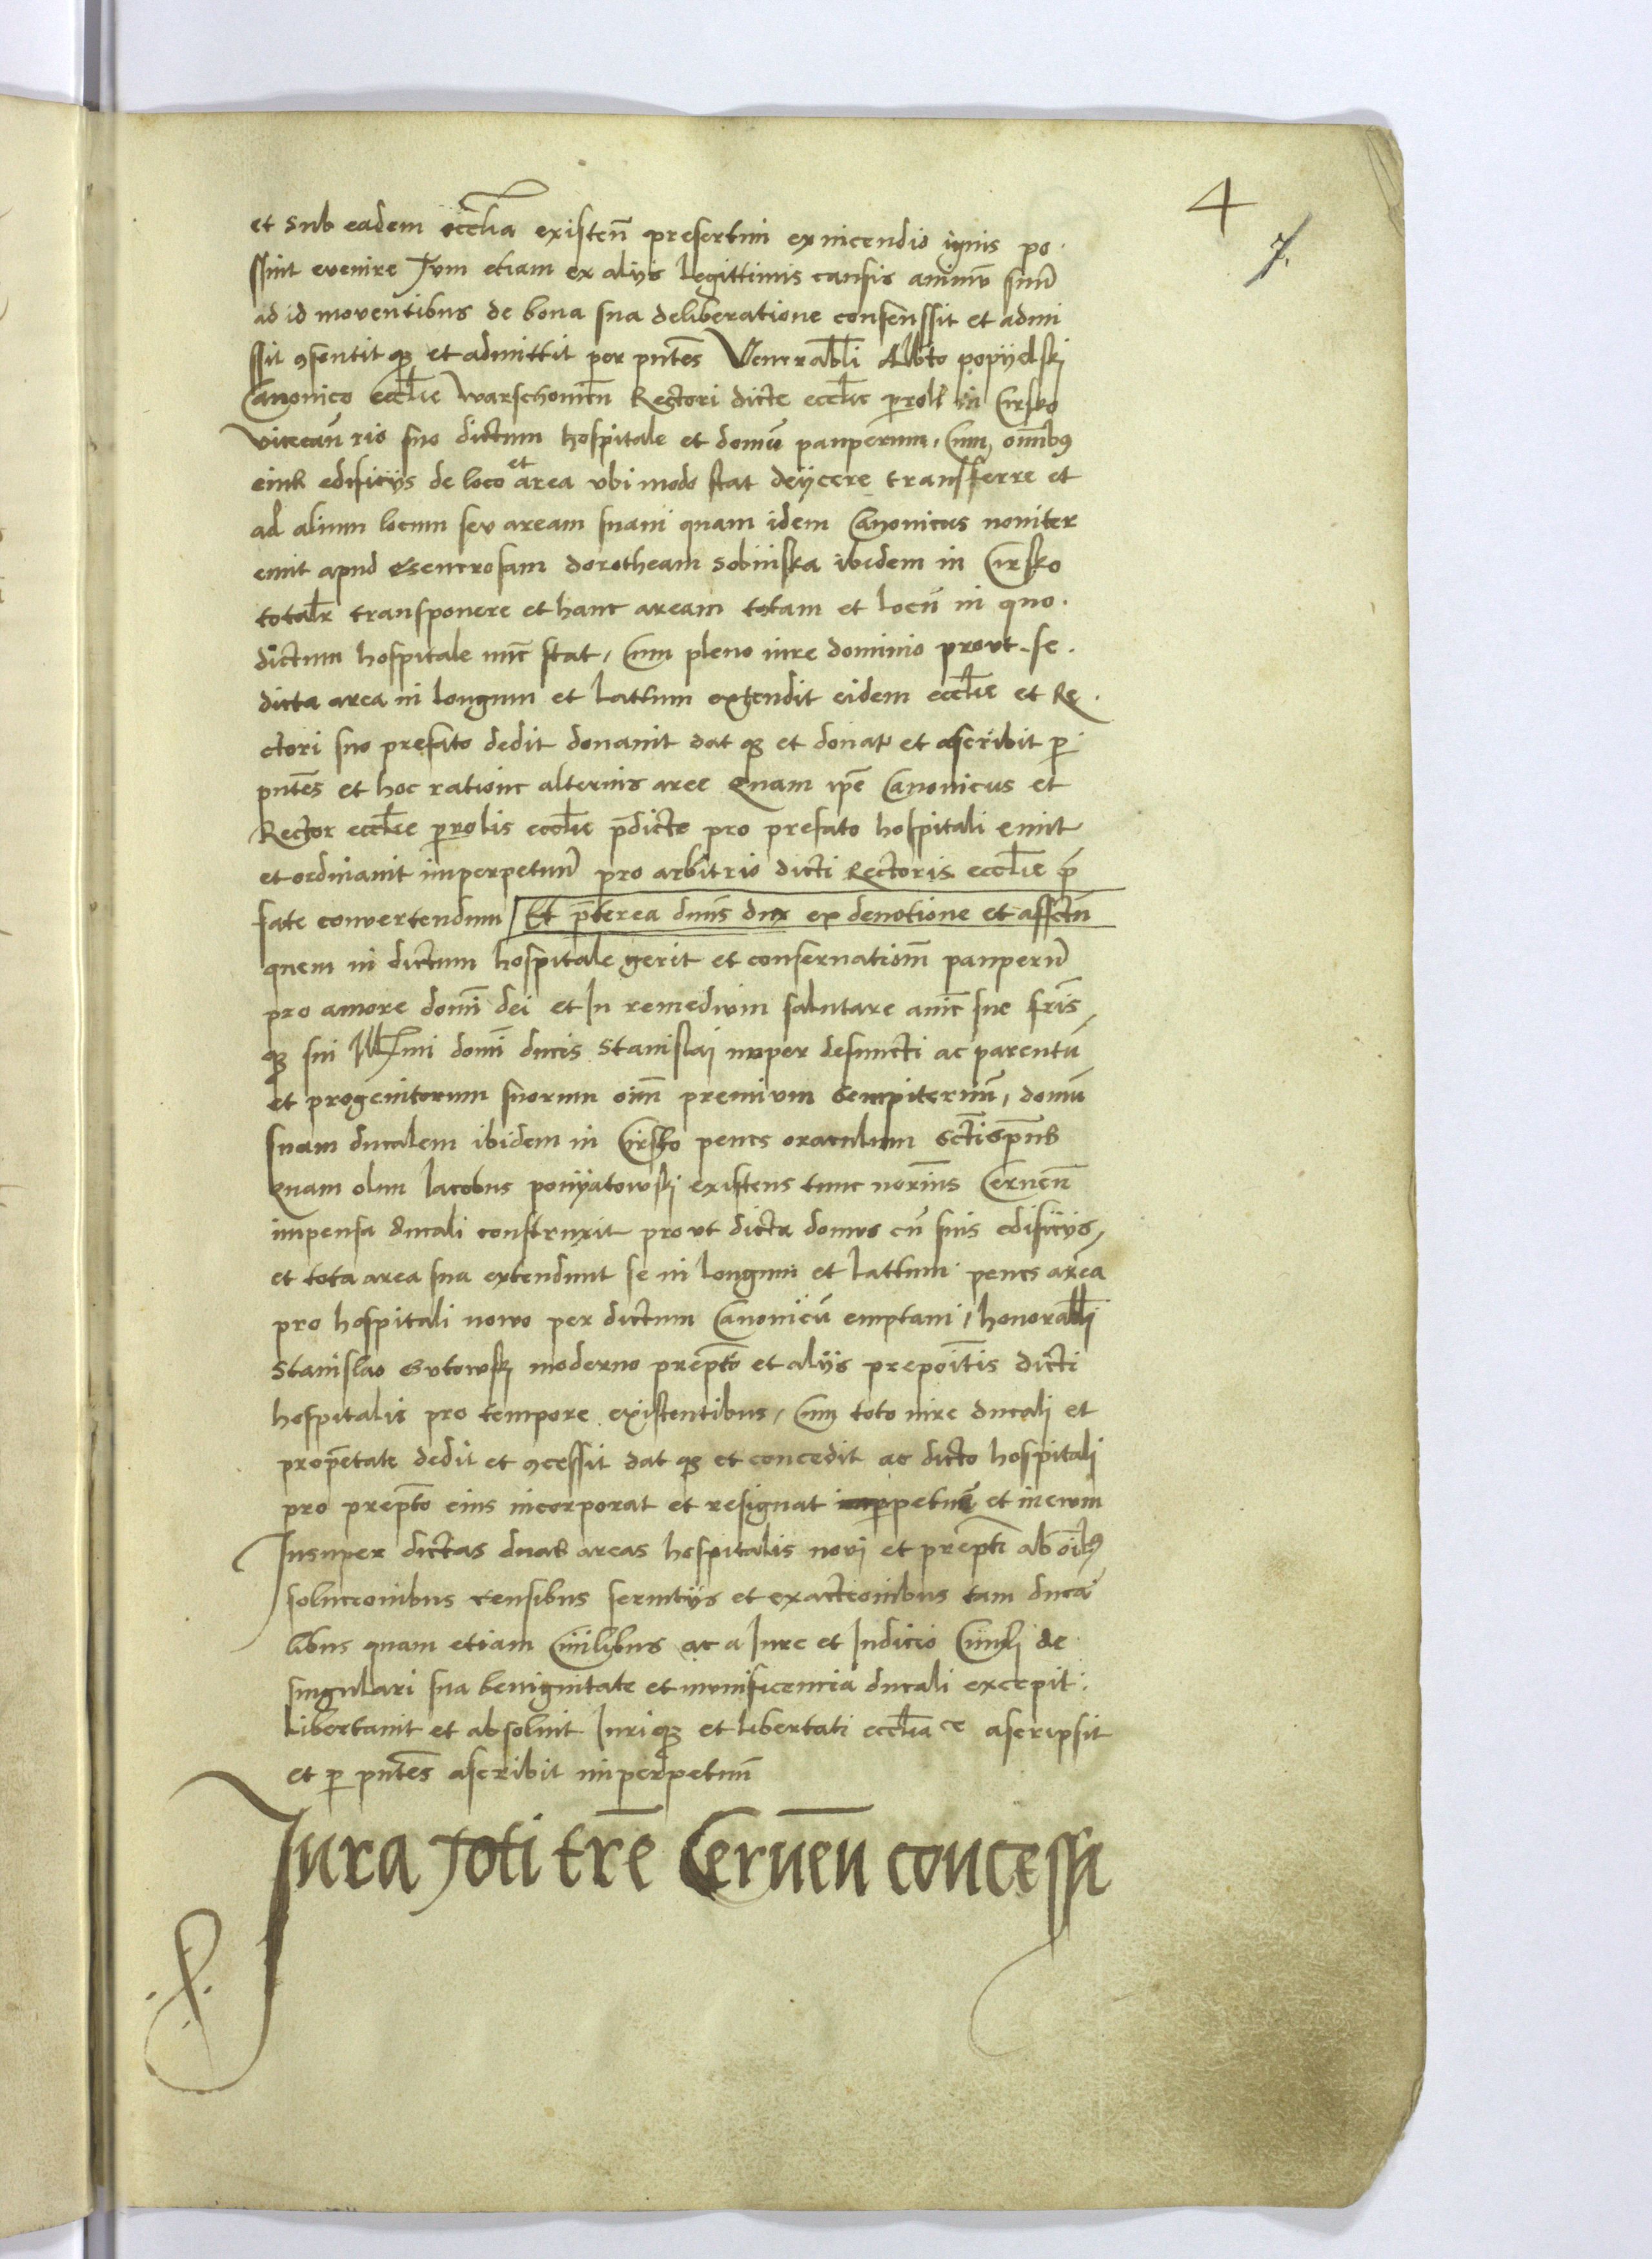 4
7.
et sub eadem eccl̄ia existen̄ presertim ex incendio ignis po
ssint evenire Tum etiam ex alijs legittimis causis animū suū
ad id moventibus de bona sua deliberatione consenssit et admi
ssit ꝯsentit qꝫ et admittit per pn̄tes Venerabl̄i Alb̄to popyelskj
Canonico eccl̄ie warschouien̄ Rectori dicte eccl̄ie in Cirsko
vicecan̄rio suo dictum hospitale et domū pauperum, Cum om̄ibꝯ
edificijs de loco et area vbi modo stat deijcere transferre et
ad alium locum sev aream suam quam idem Canonicus noviter
emit apud Generosam dorotheam sobinska ibidem in Cirsko
total̄r transponere et hanc aream totam et locū in quo
dictum hospitale nūc stat, Cum pleno iure dominio provt se
dicta area in longum et lattum extendit eidem eccl̄ie et Re
ctori suo prefato dedit donavit dat qꝫ et donat et ascribit ꝑ
pn̄tes et hoc ratione alterius aree Quam ip̄e Canonicus et
Rector eccl̄ie ꝑrolis eccl̄ie p̄dicte pro prefato hospitali emit
et ordinavit imperpetuū pro arbitrio dicti Rectoris eccl̄ie p̄
fate convertendum Et p̄terea dnūs dux ex devotione et affctū
quem in dictum hospitale gerit et conservatiōm pauperū
pro amore domī dei et In remedium salutare aīe sue frīs
qꝫ sui Ill̄mi domī ducis Stanislaj nuper defuncti ac parentū
et progenitorum suorum oīm premium sempiternū, domū
suam ducalem ibidem in Cirsko penes oraculum Sctīsp̄us
Quam olim Iacobus ponyatowskj existens tunc Cernen̄
impensa ducali construxit provt dicta domus cū suis edificijs
et tota area sua extendunt se in longum et lattum penes area
pro hospitali novo per dictum Canonicū emptam, honorabl̄i
Stanislao Gutowskj moderno prep̄to et alijs prepoītis dicti
hospitalis pro tempore existentibus, Cum toto iure ducalj et
prop̄etate dedit et ꝯcessit dat qꝫ et concedit ac dicto hospitalj
pro prep̄to eius incorporat et resignat et in ewm
Insuper dictas duas areas hospitalis novj et prep̄ti ab oībꝯ
solucionibus censibus servitijs et exactionibus tam duca
libus quam etiam Civilibus ac a Iure et Iudicio Civilj de
singulari sua benignitate et munificencia ducali excepit
libertavit et absolvit Iuri qꝫ et libertati eccl̄iace ascripsit
et ꝑ pn̄tes ascribit imperpetuū
Iura toti trē Cernen̄ concessi